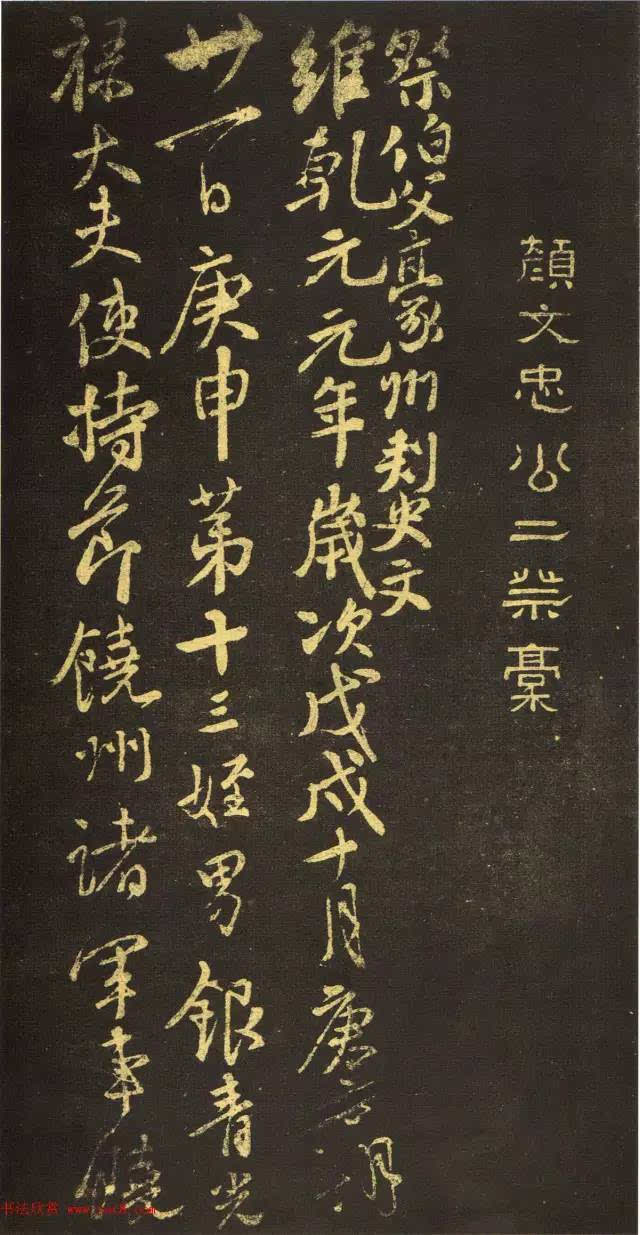 顏文忠公二祭稾
祭伯父豪州刺史文
維乾元元年歲次戊戌十月庚寅朔
廿一日庚申第十三姪男銀青光
祿大夫使持節饒州諸軍事饒
书法欣赏